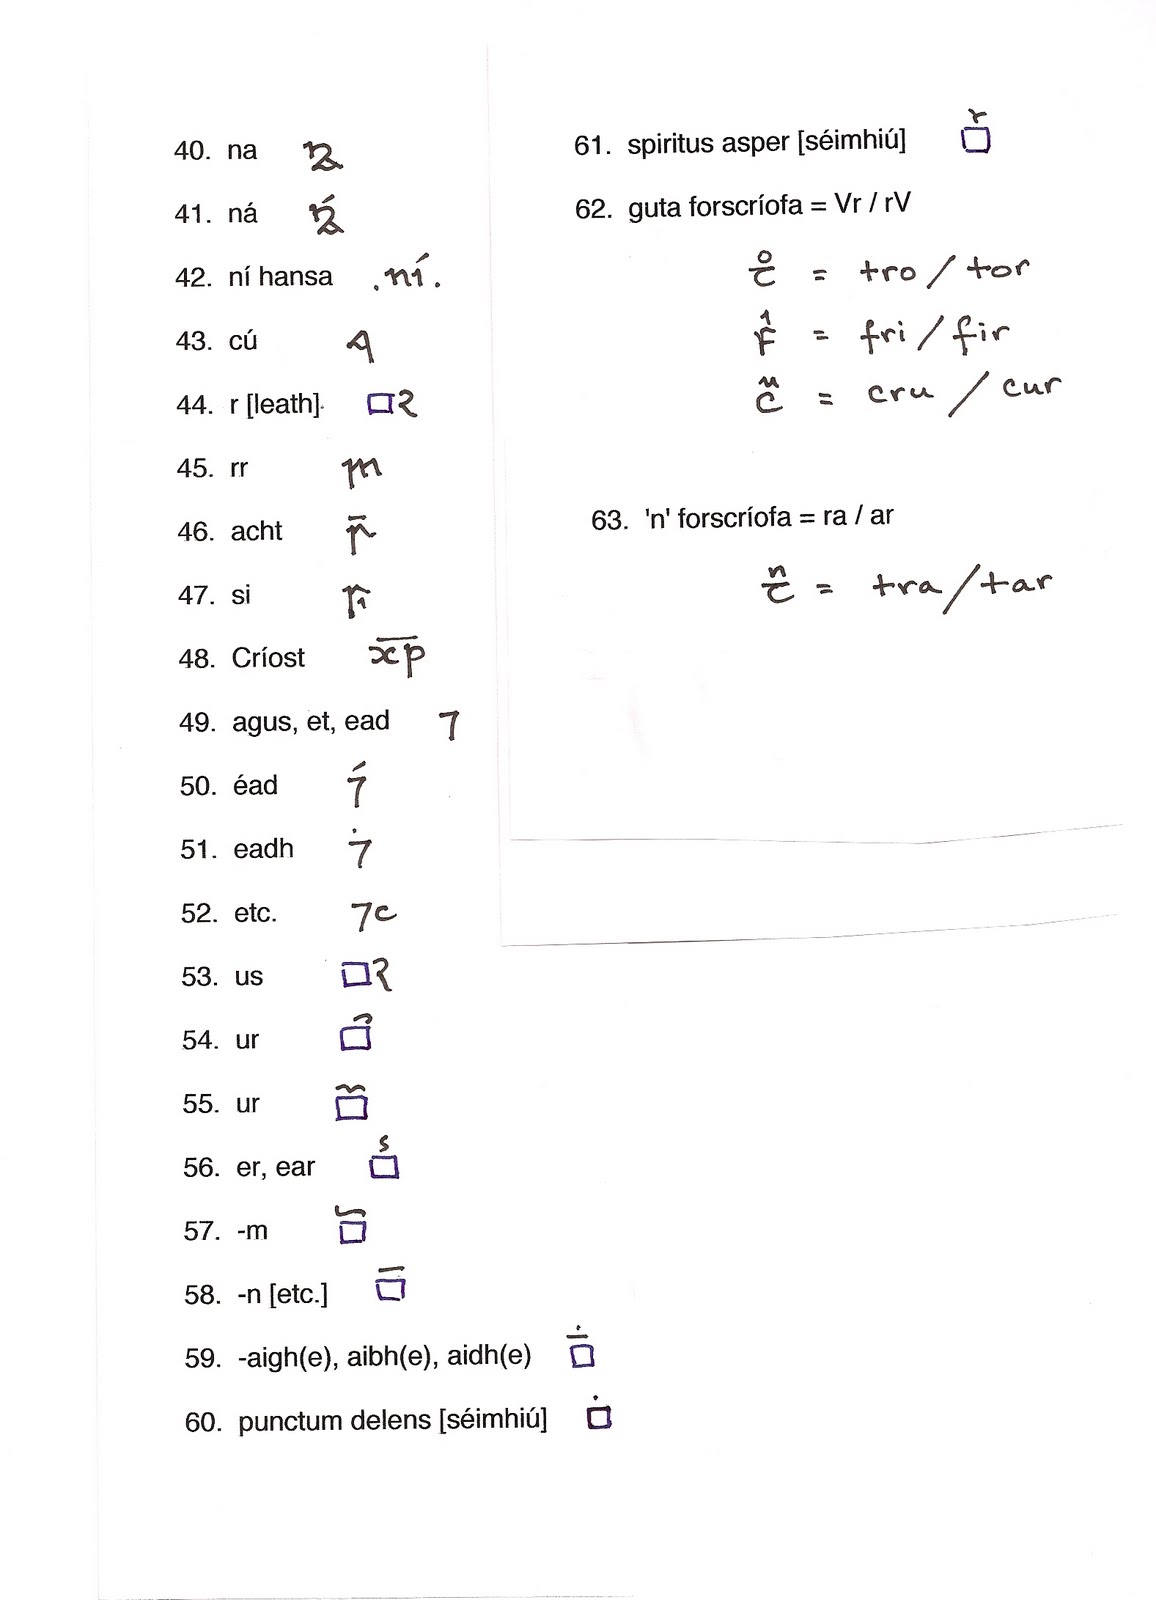 40. na
41. ná
42. ní hansa .ní.
43. cú
44. r [leath]. 2
45. rr
46. acht
47. si
48. Críost x̅p̅
49. agus, et, ead 7
50. éad 7́
51. eadh 7̇
52. etc. 7c
53. us 2
54. ur
55. ur
56. er, ear s
57. -m
58. -n [etc.]
59. -aigh(e), aibh(e), aidh(e)
60. punctum delens [séimhiú]
61. spiritus asper [séimhiú]
62. guta forscríofa = Vr / rV
= tro / tor
= fri / fir
= cru / cur
63. 'n' forscríofa = ra / ar
= tra / tar